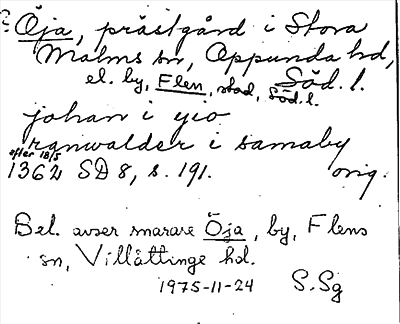 ? Öja, prästgård i Stora
Malms sn, Oppunda hd,
el. by, Flen, stad, Söd. l. Söd. l.
johan i yio
ranwalder i samaby
efter 18/5
1362 SD 8, s. 191. orig.
Bel. avser snarare Öja, by, Flens
sn, Villåttinge hd.
1975-11-24 S. Sg